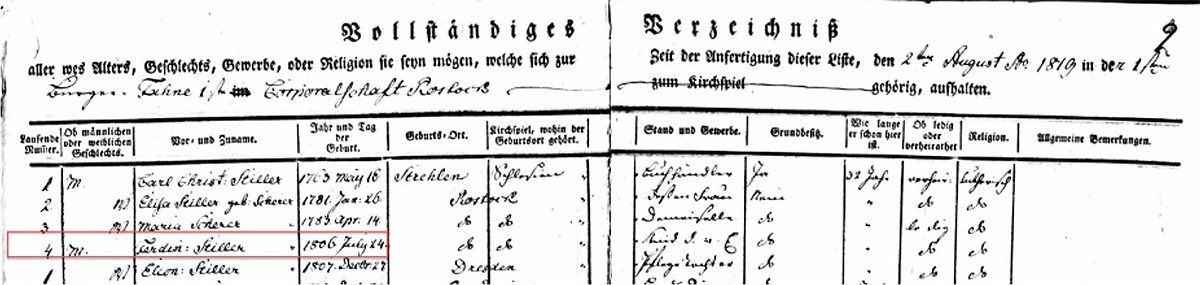 Vollständiges Verzeichniß 2
aller wes Alters, Geschlechts, Gewerbe, oder Religion sie seyn mögen, welche sich zur Zeit der Anfertigung dieser Liste, den 2ten August Ao 1819 in der 1sten
Bürger-Fahne 1ste im Corporalschaft Rostock zum Kirchspiel gehörig, aufhalten.
Laufende Nummer. Ob männlichen oder weiblichen Geschlechts. Vor- und Zuname. Jahr und Tag der Geburt. Geburts-Ort. Kirchspiel, wohin der Geburtsort gehört. Stand und Gewerbe. Grundbesitz. Wie lange er schon hier ist. Ob ledig oder verheirathet Religion. Allgemeine Bemerkungen.
1 M. Carl Christ: Stiller 1763 May 16 Strehlen Schlesien " Buchhändler Ja 32 Jahr verheir: lutherisch
2 W Elisa Stiller geb: Scherer 1781 Jan: 26. Rostock " dessen Frau Nein " do do
3 W Maria Scherer " 1783 Apr. 14 do do " Demoiselle do " ledig do
4 M. Ferdin: Stiller " 1806 July 24. do do " Kind d. v. E do " do do
1 W Elion: Stiller " 1807. Decbr 27 Dresden " Pflegetochter do " do do